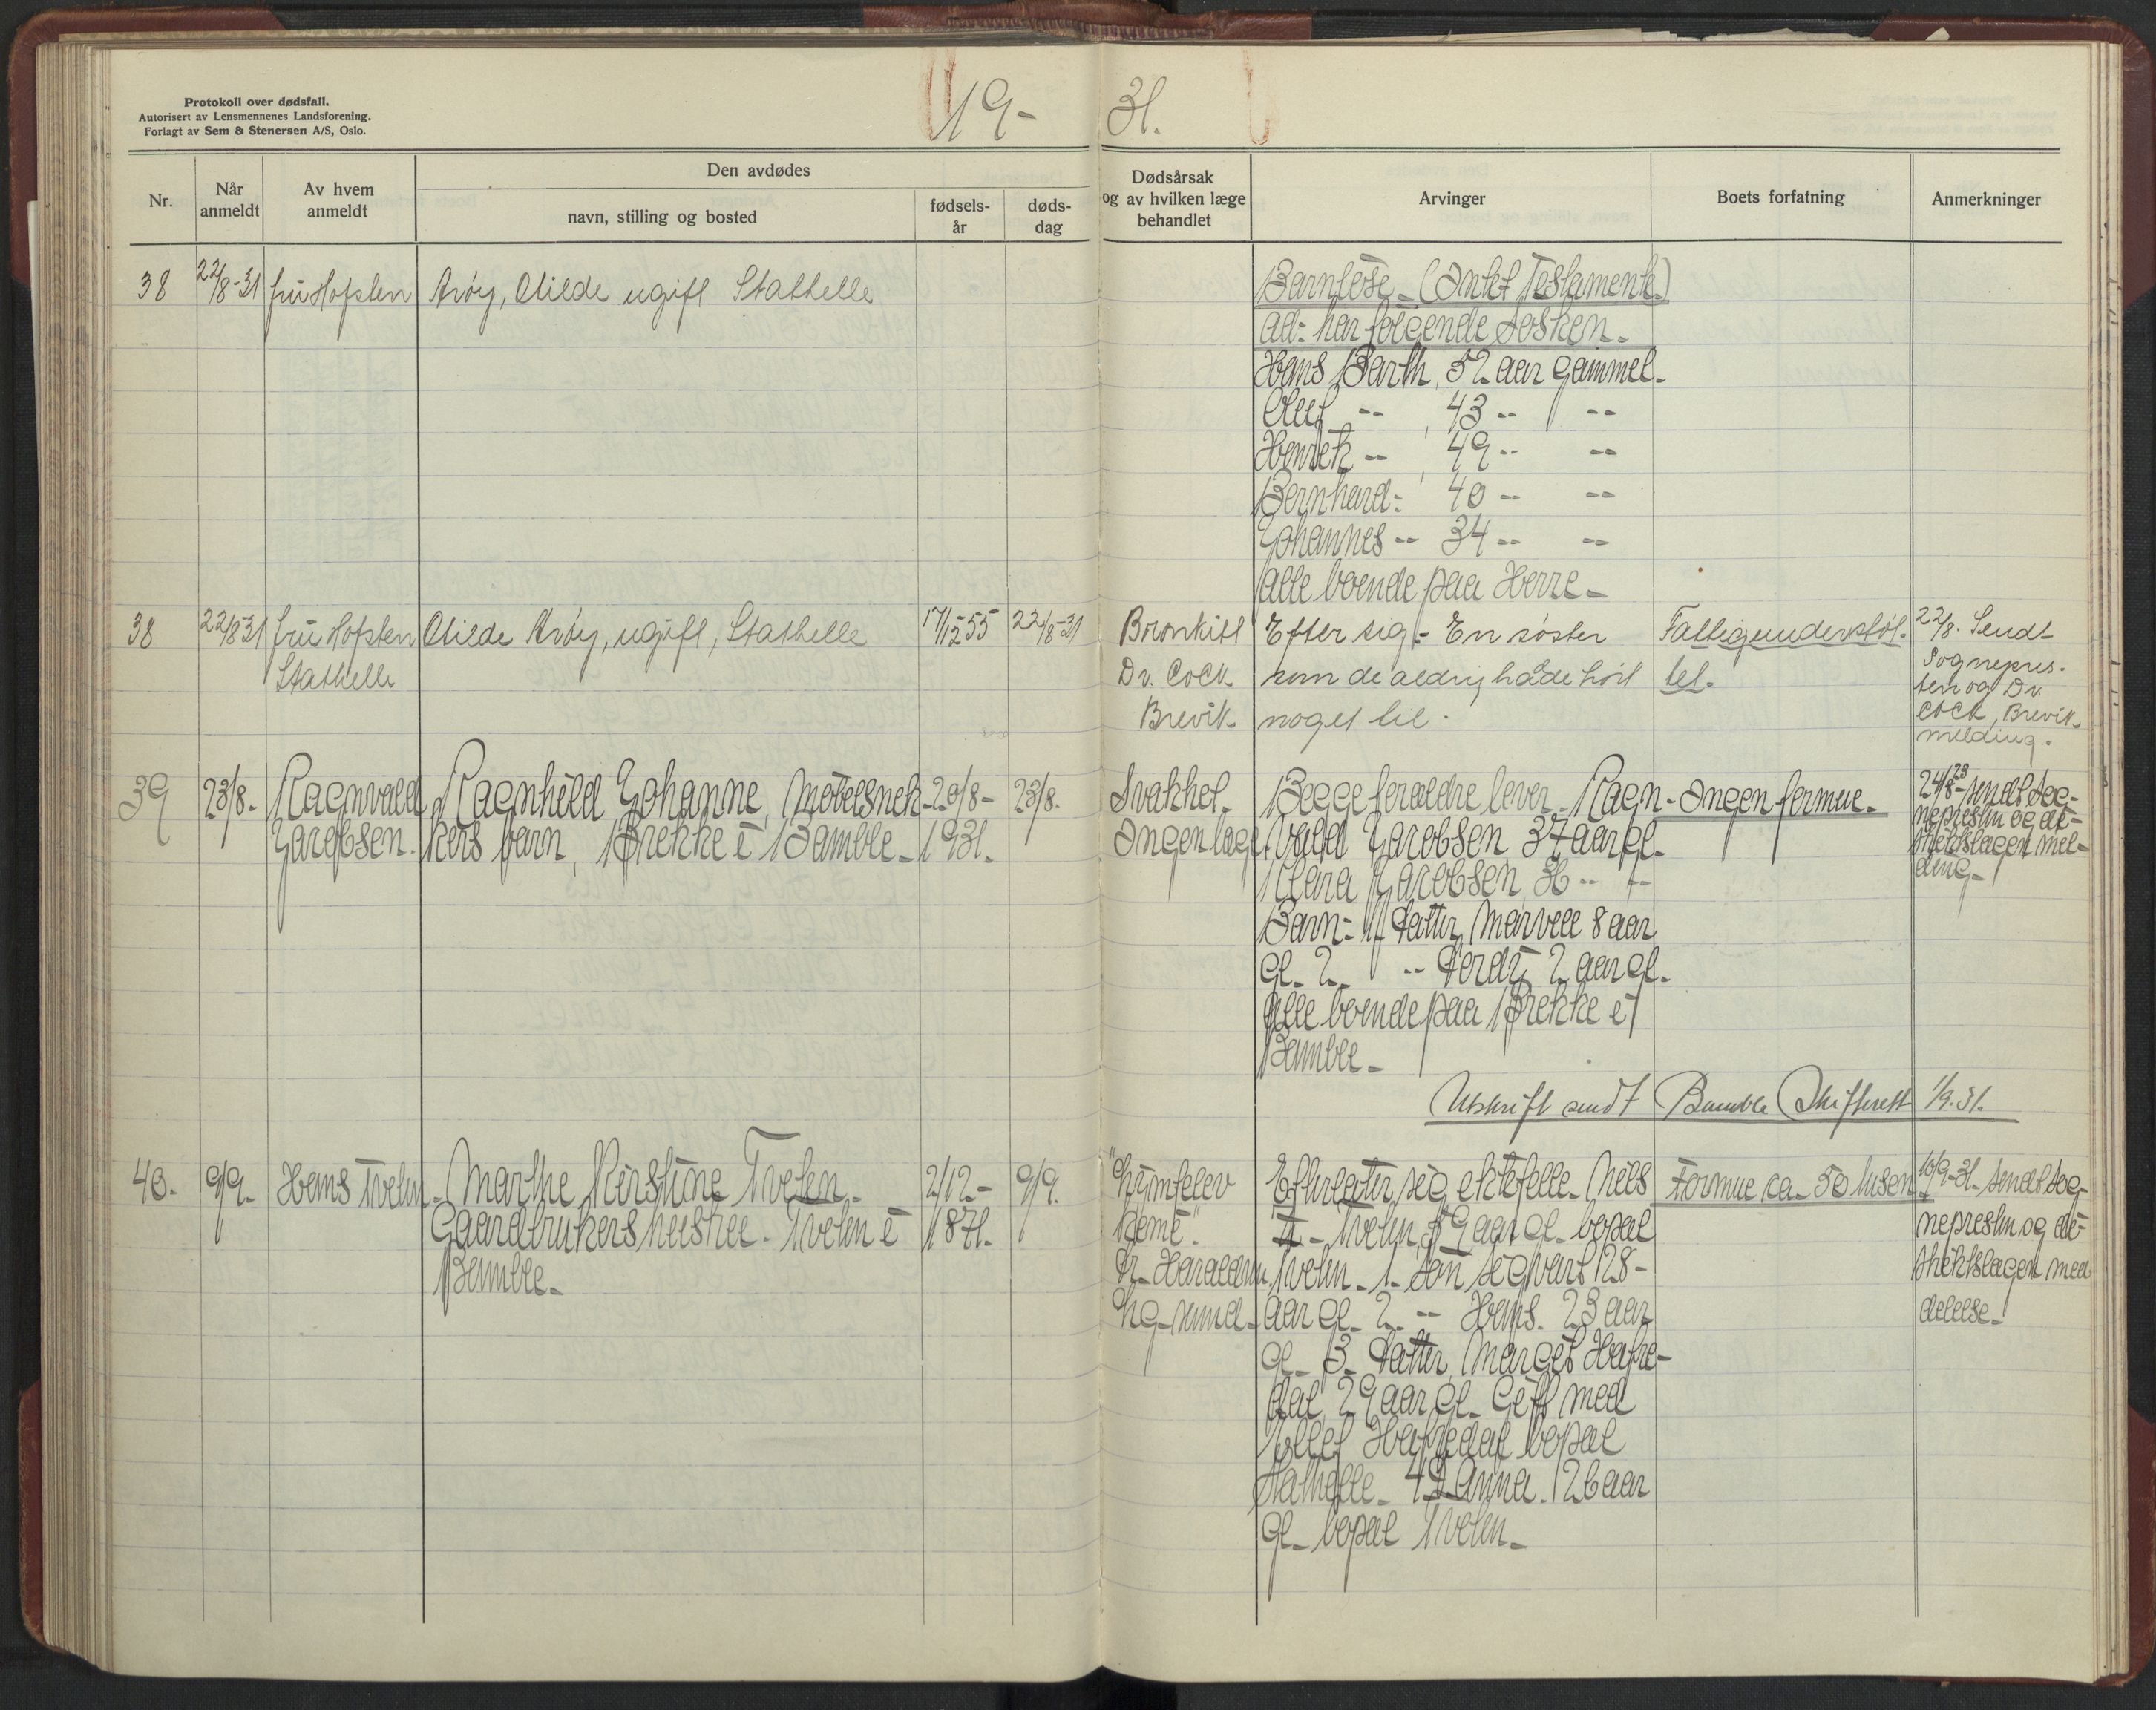 Protokoll over dødsfall.
Autorisert av Lensmennenes Landsforening.
Forlagt av Sem & Stenersen A/S, Oslo.
19-31.
Nr.
Når anmeldt
Av hvem anmeldt
Den avdødes
navn, stilling og bosted
fødsels-år
døds-dag
Dødsårsak og av hvilken læge behandlet
Arvinger
Boets forfatning
Anmerkninger
38
22/8-31
fru Hofsten
Arøy, Otilde ugift Stathelle
Barnløse - (Intet Testamente)
ad: har følgende søsken -
Hans Barth, 52 aar gammel -
Oluf -- , 43 -- --
Henrik -- , 49 -- --
Bernhard: 40 -- --
Johannes -- 34 -- --
alle boende paa Herre -
38
22/8-31
fru Hofsten
Stathelle
Otilde Arøy, ugift, Stathelle
17/12-55
22/8-31
Bronkitt
Dr. Cock
Brevik.
Efter sig - En søster
som de aldrig hade hørt
noget til.
Fattigunderstøt-
tet.
22/8. Sendt
Sognepres-
ten og Dr.
Cock, Brevik
melding.
39
23/8.
Ragnvald
Jacobsen.
Ragnhild Johanne, Møbelsnek-
kers barn, Brekke i Bamble -
20/8-
1931.
23/8.
Svakhet.
Ingen læge.
Begge foreldre lever. Ragn-
vald Jacobsen 37 aar gl.
Klara Jacobsen 36 -- --
Barn = 1 datter, Marvell 8 aar
gl. 2. -- Gerdy, 2 aar gl.
alle boende paa Brekke i
Bamble -
Ingen formue -
24/8-23 sendt sog-
neprestn og di-
striktslægen mel-
ding -
Utskrift sendt Bamble Skifterett 1/9.31.
40.
9/9.
Hans Tveten
Marthe Kirstine Tveten -
Gaardbrukers hustru. Tveten i
Bamble -
2/12-
1871.
9/9.
Dr. Haraldsen
Efterlater sig ektefelle - Nils
Tveten, 59 aar gl - bopæl
Tveten - 1 - søn Sigvart 28 -
aar gl - 2. -- Hans. 23 aar
gl - 3 - datter, Margit Hafre-
dal 29 aar gl - Gift med
Tollef Hafredal bopæl
Stathelle - 4 D Anna - 26 aar
gl - bopæl Tveten -
Formue ca - 50 tusen -
10/9-31 - sendt sog-
neprestn og di-
striktslægen med
delelse -